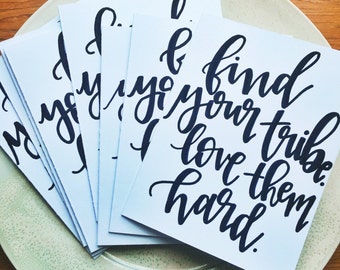 find
your tribe.
love them
hard.